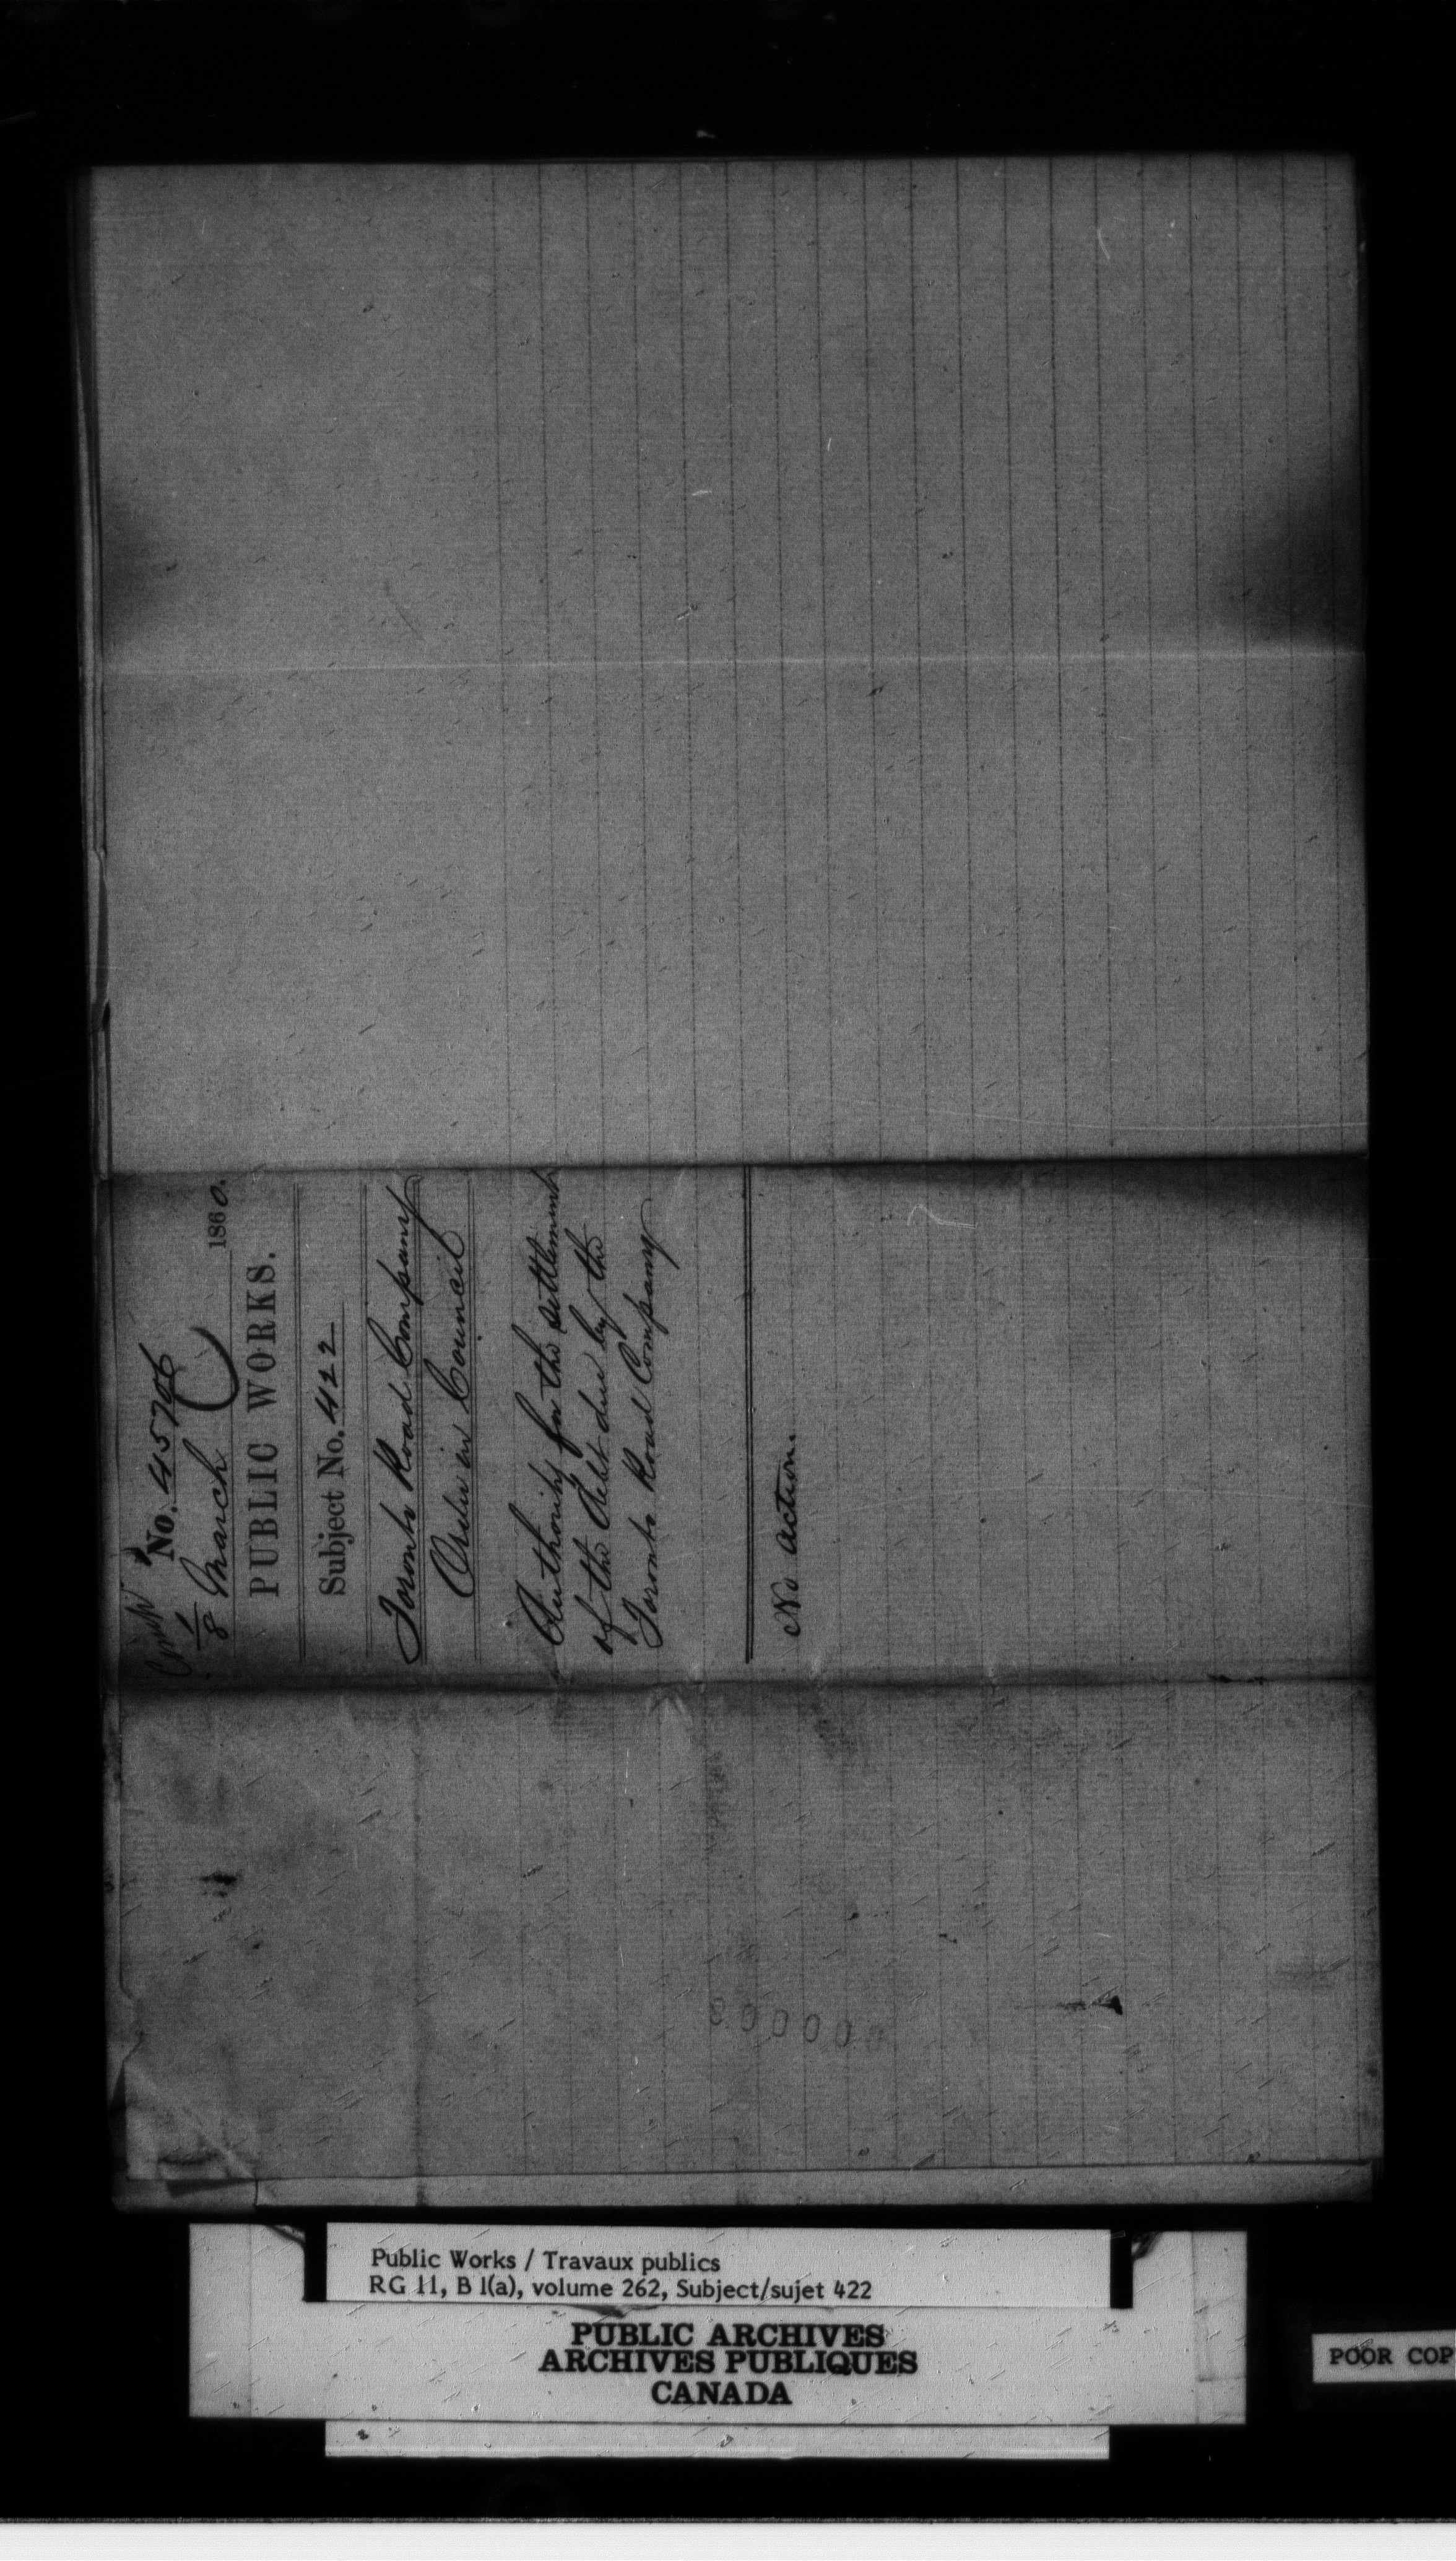 No. 45706
1/8 March 1860.
PUBLIC WORKS.
Subject No. 422
Toronto Road Company
Order in Council
Authority for the settlement
of the Debt due by the
Toronto Road Company
No action.
000000
Public Works / Travaux publics
RG 11, B 1(a), volume 262, Subject/sujet 422
PUBLIC ARCHIVES
ARCHIVES PUBLIQUES
CANADA
POOR COP